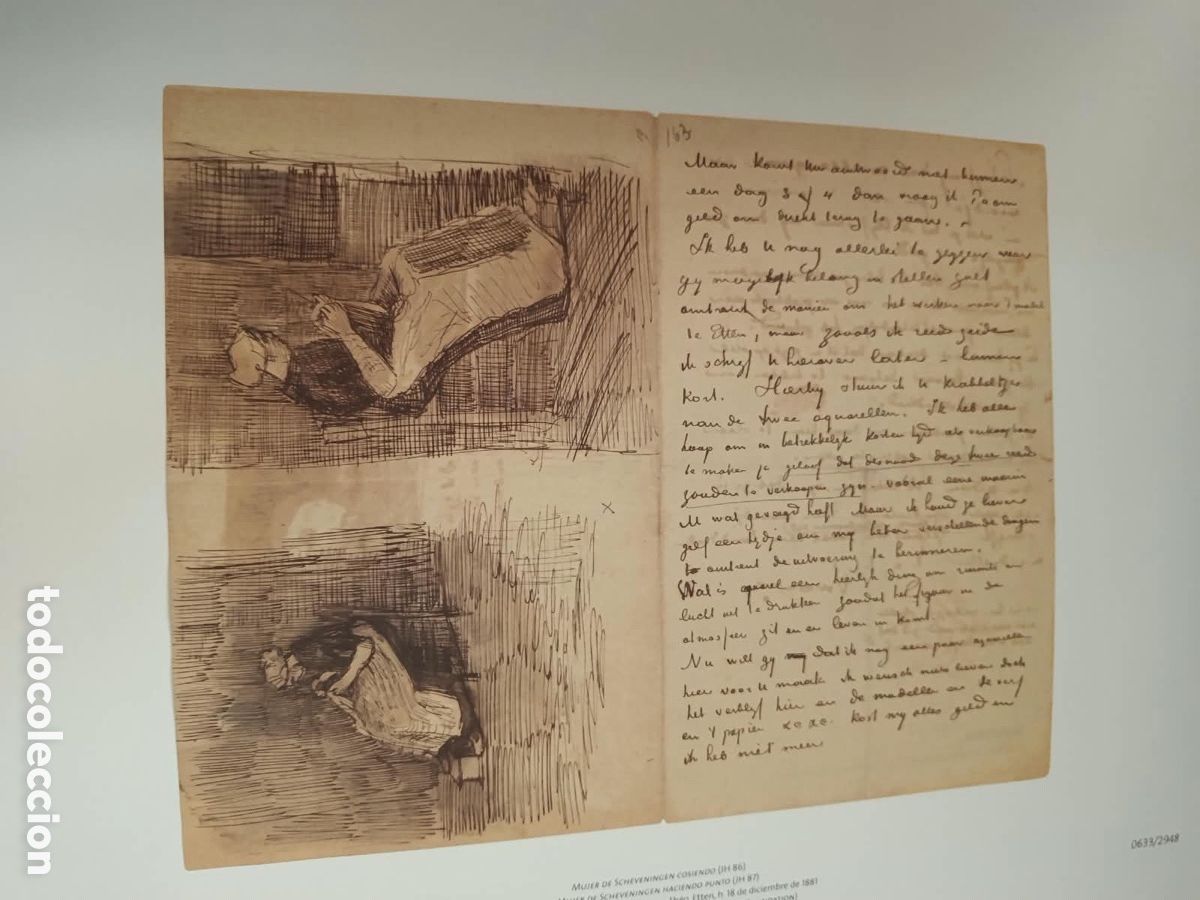 163
Maar komt Uw antwoord niet binnen
een dag 3 of 4 dan vraag ik Pa om
geld om direkt terug te gaan.
Ik heb U nog allerlei te zeggen waar
gij mogelijk belang in stellen zult
omtrent de manier om het werken naar 't model
te Etten, maar zooals ik reeds zeide
ik schrijf U hierover later – binnen
kort. Hierbij stuur ik U krabbeltjes
van de twee aquarellen. Ik heb alle
hoop om in betrekkelijk korten tijd iets verkoopbaars
te maken ja geloof dat desnoods deze twee reeds
zouden te verkoopen zijn. vooral eene waarin
M wat geveegd heeft Maar ik houd ze liever
zelf een tijdje om mij beter verschillende dingen
omtrent de uitvoering te herinneren.
Wat is aquarel een heerlijk ding om ruimte en
lucht uit te drukken zoodat het figuur in de
atmosfeer zit en er leven in komt.
Nu wilt gij dat ik nog een paar aquarellen
hier voor U maak ik wensch niets liever doch
het verblijf hier en de modellen en de verf
en 't papier &c &c. kost mij alles geld en
ik heb niet meer
x
MUJER DE SCHEVENINGEN COSIENDO (JH 86)
MUJER DE SCHEVENINGEN HACIENDO PUNTO (JH 87)
Etten, h. 18 de diciembre de 1881
0633/2948
todocoleccion